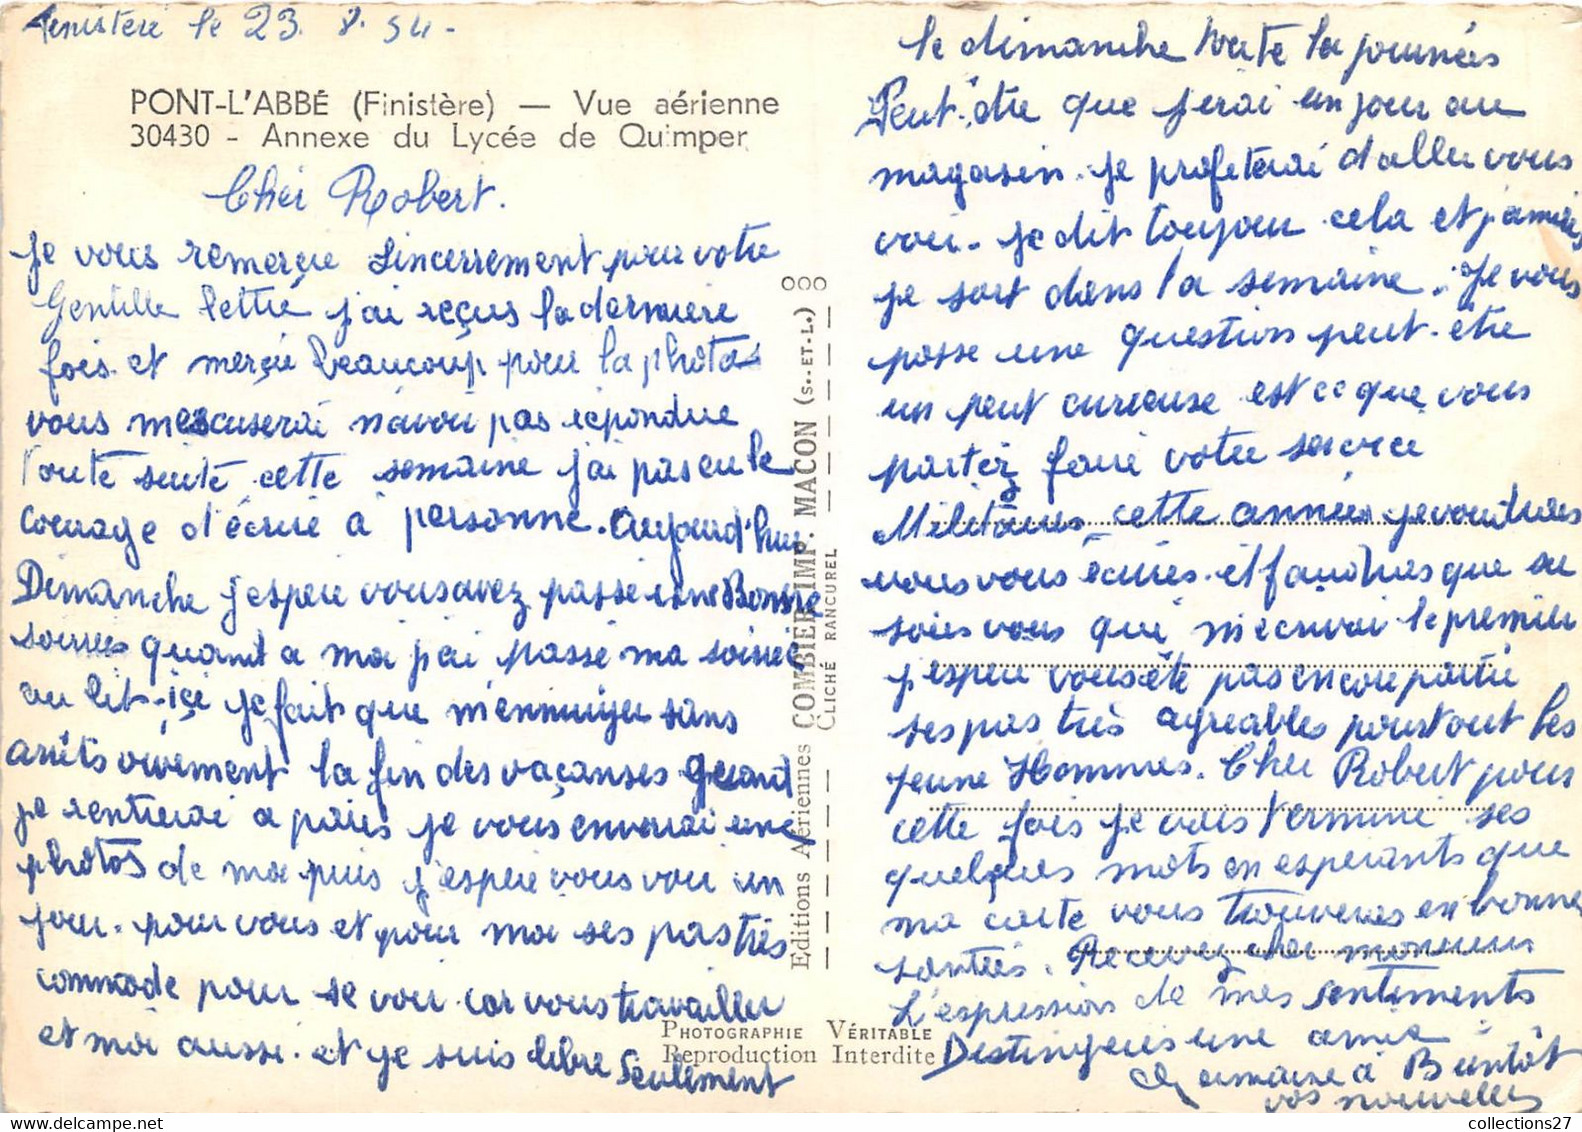 Finistère le 23. 8. 54.
PONT-L'ABBÉ (Finistère) — Vue aérienne
30430 - Annexe du Lycée de Quimper
Cher Robert.
Je vous remerçie sincerrement pour votre
Gentille lettre j'ai reçus la dernière
fois. et merçie beaucoup pour la photos
vous mescuserai n'avoir pas repondue
Toute suite cette semaine j'ai pas eu le
courage d'écrire a personne. Aujourd'hui
Dimanche j'espere vous avez passé une Bonne
soirées quant a moi j'ai passé ma soirée
au lit - içi je fait que m'ennuiyer sans
arrêts vivement la fin des vaçanses Quand
je rentrerai a paris je vous enverai une
photos de moi puis j'espere vous voir un
jour. pour vous et pour moi ses pas très
commode pour se voir car vous travailler
et moi aussi. et je suis libre seulement
le dimanche toute la journées
Peut-être que ferai un jour au
magasin. je profiterai d'aller vous
voir. je dit toujour cela et jamais
je sort dans la semaine. Je vous
posse une question peut-être
un peut curieuse est ce que vous
partez faire votre service
Militaires cette années je voudrais
vous vous écrires. il faudras que ce
soies vous qui m'ecrivai le premier
j'espere vous ête pas encour partie
ses pas très agreables pour tout les
jeune Hommes. Cher Robert pour
cette fois je vais terminé ses
quelques mots en esperants que
ma carte vous trouveras en bonne
santées. Recevez cher monsieur
L'expression de mes sentiments
Distingués une amie
Germaine a Bientôt
vos nouvelles
Editions Aériennes COMBIER IMP. MACON (S.-ET-L.) 000
CLICHÉ RANCUREL
PHOTOGRAPHIE VÉRITABLE
Reproduction Interdite
collections27